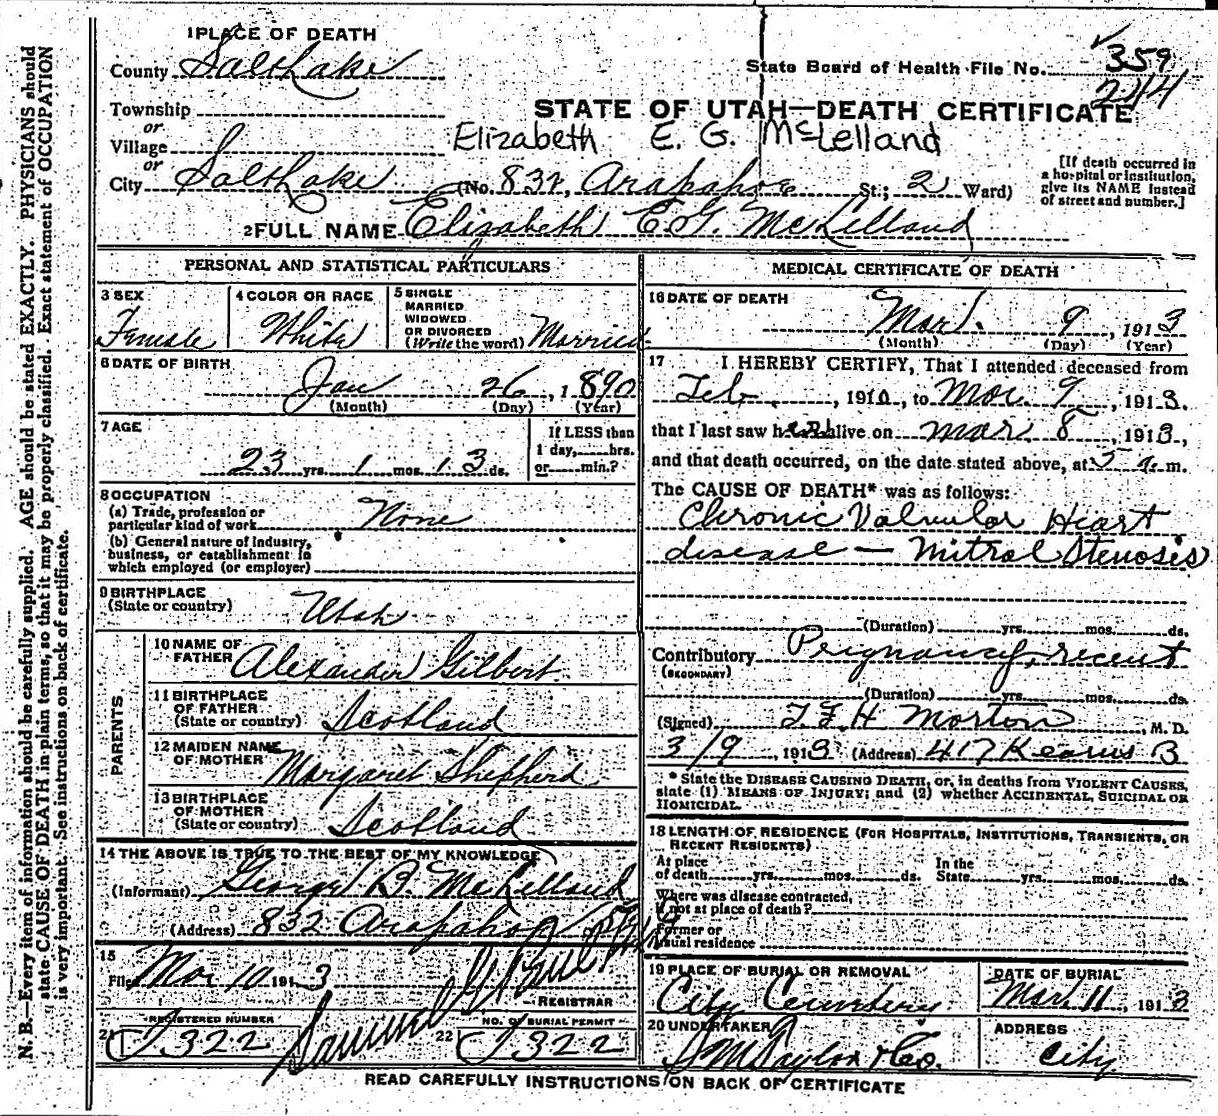 1 PLACE OF DEATH
County Salt Lake
State Board of Health File No. 359
2214
Township
or
Village
or
City Salt Lake
STATE OF UTAH—DEATH CERTIFICATE
Elizabeth E. G. McLelland
(No. 832, Arapahoe St.; 2 Ward)
[If death occurred in
a hospital or institution,
give its NAME instead
of street and number.]
2 FULL NAME Elizabeth E.G. McLelland
PERSONAL AND STATISTICAL PARTICULARS
3 SEX
Female
4 COLOR OR RACE
White
5 SINGLE
MARRIED
WIDOWED
OR DIVORCED
(Write the word) Married
6 DATE OF BIRTH
Jan 26, 1890
(Month) (Day) (Year)
7 AGE
23 yrs. 1 mos. 13 ds.
If LESS than
1 day,......hrs.
or......min.?
8 OCCUPATION
(a) Trade, profession or
particular kind of work None
(b) General nature of industry,
business, or establishment in
which employed (or employer)
9 BIRTHPLACE
(State or country) Utah
PARENTS
10 NAME OF
FATHER Alexander Gilbert
11 BIRTHPLACE
OF FATHER
(State or country) Scotland
12 MAIDEN NAME
OF MOTHER Margaret Shepherd
13 BIRTHPLACE
OF MOTHER
(State or country) Scotland
14 THE ABOVE IS TRUE TO THE BEST OF MY KNOWLEDGE
(Informant) George B. McLelland
(Address) 832 Arapahoe
15
Filed Mar 10 1913
REGISTRAR
REGISTERED NUMBER
21 J322
Samuel
NO. OF BURIAL PERMIT
22 J322
MEDICAL CERTIFICATE OF DEATH
16 DATE OF DEATH
Mar. 9, 1913
(Month) (Day) (Year)
17 I HEREBY CERTIFY, That I attended deceased from
Feb., 1910, to Mar. 9, 1913.
that I last saw her alive on Mar 8, 1913,
and that death occurred, on the date stated above, at 5 a.m.
The CAUSE OF DEATH* was as follows:
Chronic Valvular Heart
disease — Mitral Stenosis
(Duration) yrs. mos. ds.
Contributory Pregnancy, recent
(SECONDARY)
(Duration) yrs. mos. ds.
(Signed) T.F.H. Morton, M. D.
3/9, 1913 (Address) 417 Kearns B
* State the DISEASE CAUSING DEATH, or, in deaths from VIOLENT CAUSES,
state (1) MEANS OF INJURY; and (2) whether ACCIDENTAL, SUICIDAL OR
HOMICIDAL.
18 LENGTH OF RESIDENCE (FOR HOSPITALS, INSTITUTIONS, TRANSIENTS, OR
RECENT RESIDENTS)
At place In the
of death yrs. mos. ds. State yrs. mos. ds.
Where was disease contracted,
if not at place of death?
Former or
usual residence
19 PLACE OF BURIAL OR REMOVAL
City Cemetery
DATE OF BURIAL
Mar. 11, 1913
20 UNDERTAKER
S M Taylor & Co.
ADDRESS
City
READ CAREFULLY INSTRUCTIONS ON BACK OF CERTIFICATE
N. B.—Every item of information should be carefully supplied. AGE should be stated EXACTLY. PHYSICIANS should
state CAUSE OF DEATH in plain terms, so that it may be properly classified. Exact statement of OCCUPATION
is very important. See instructions on back of certificate.